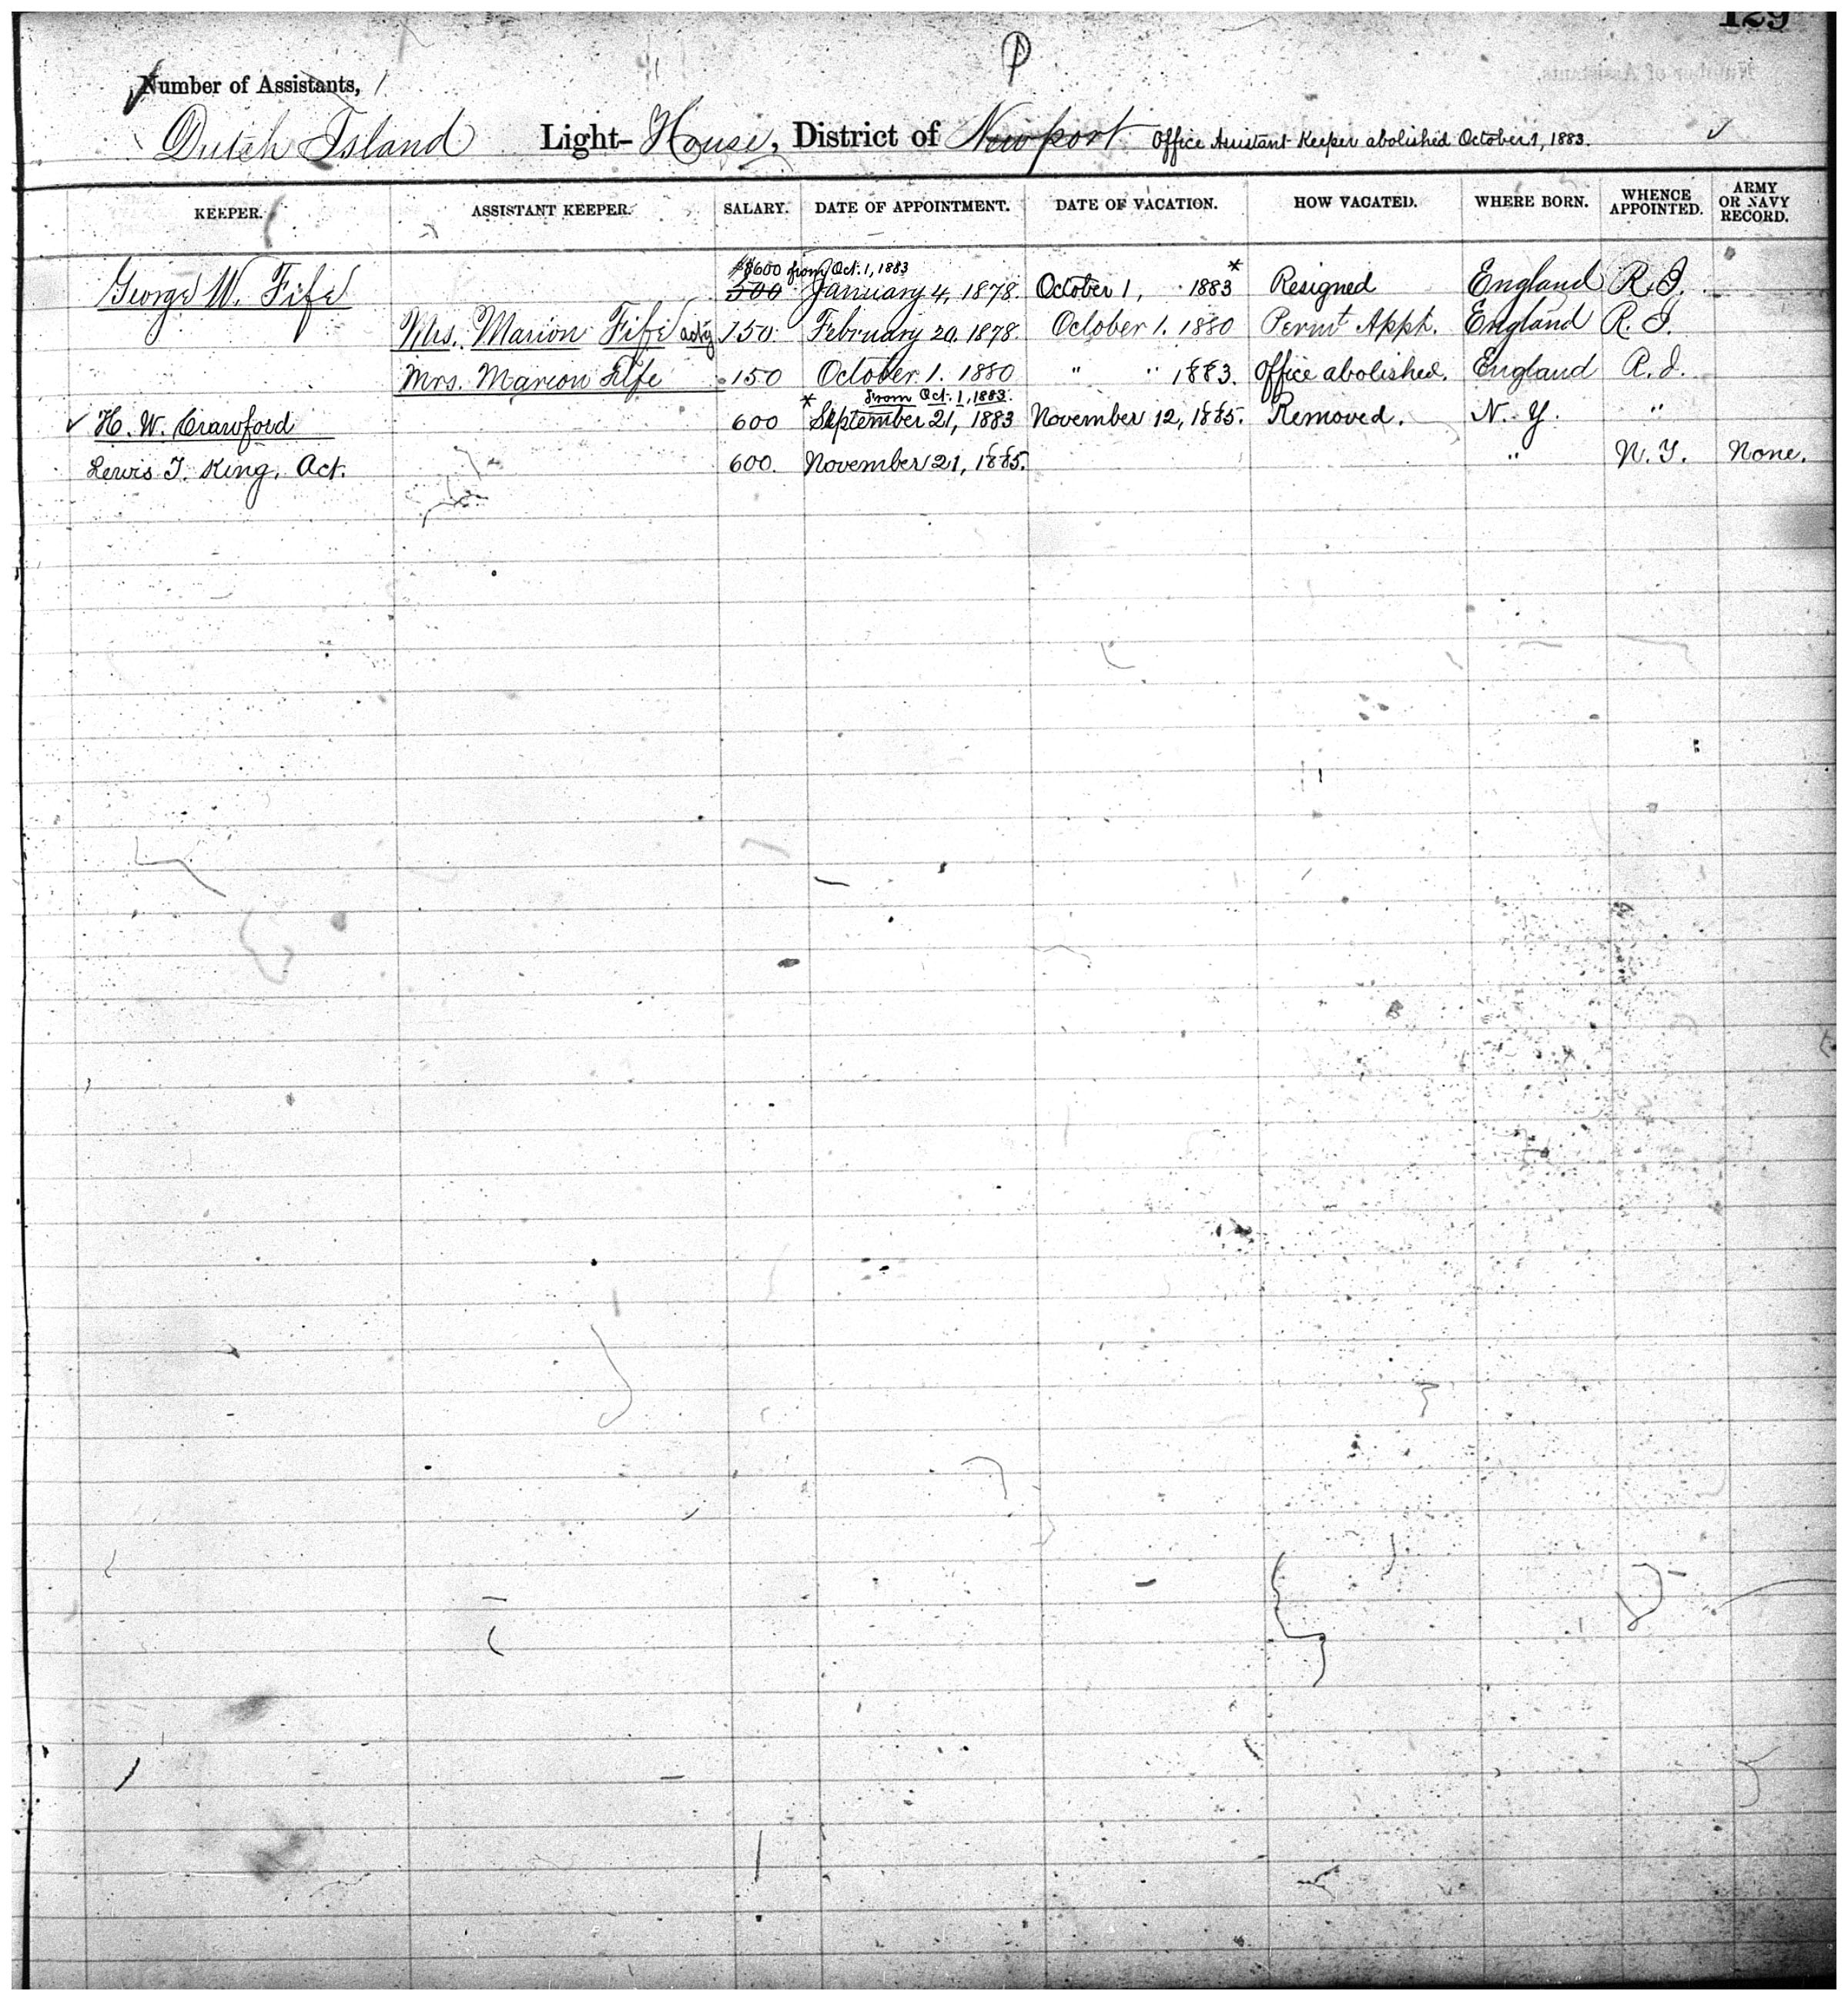 129
P
Number of Assistants, 1
Dutch Island Light-House, District of Newport Office Assistant Keeper abolished October 1, 1883.
KEEPER. ASSISTANT KEEPER. SALARY. DATE OF APPOINTMENT. DATE OF VACATION. HOW VACATED. WHERE BORN. WHENCE APPOINTED. ARMY OR NAVY RECORD.
$600 from Oct. 1, 1883
George W. Fife 500 January 4, 1878. October 1, 1883 * Resigned England R.I.
Mrs. Marion Fife actg 150. February 20, 1878. October 1. 1880 Permt Appt. England R.I.
Mrs. Marion Fife 150 October 1. 1880 " " 1883. Office abolished. England R.I.
* from Oct. 1, 1883.
✓ H. W. Crawford 600 September 21, 1883 November 12, 1885. Removed. N.Y. "
Lewis T. King, Act. 600. November 21, 1885. " N.Y. None.